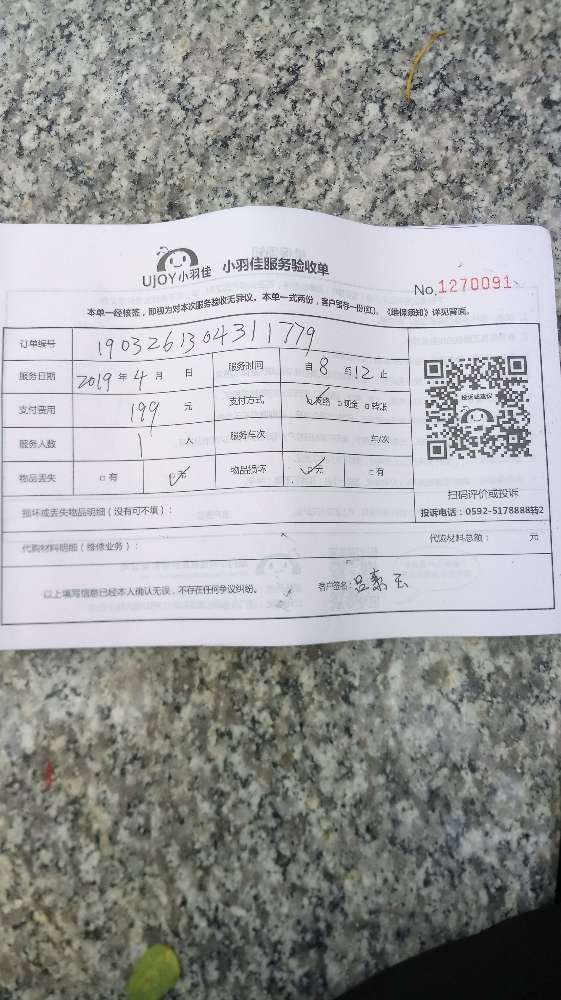 UJOY小羽佳 小羽佳服务验收单
No.1270091
本单一经核签，即视为对本次服务验收无异议。本单一式两份，客户留存一份(红)。《维保须知》详见背面。
订单编号 190326130431 1779
服务日期 2019年4月 日 服务时间 自8至12止
支付费用 199 元 支付方式 ☑网络 □现金 □转账
服务人数 1 人 服务车次 车/次
物品丢失 □有 ☑无 物品损坏 ☑无 □有
投诉或建议
扫码评价或投诉
损坏或丢失物品明细（没有可不填）：
投诉电话：0592-5178888转2
代购材料明细（维修业务）： 代购材料总额： 元
以上填写信息已经本人确认无误，不存在任何争议纠纷。 客户签名：